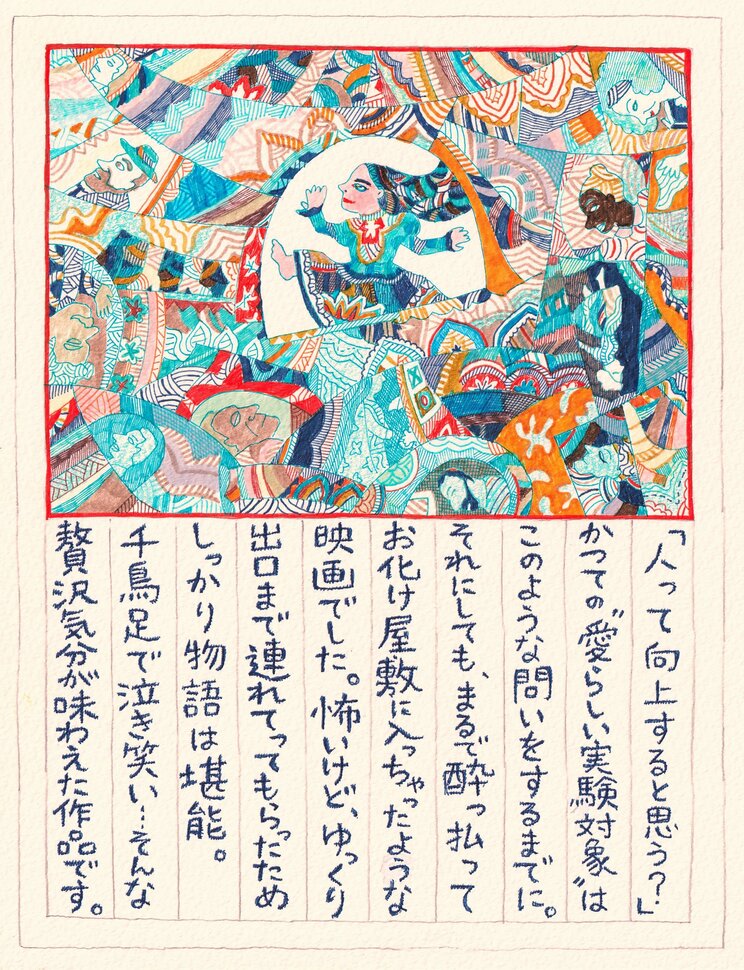 「人って向上すると思う?」
かつての〝愛らしい実験対象〟は
このような問いをするまでに。
それにしても、まるで酔っ払って
お化け屋敷に入っちゃったような
映画でした。怖いけど、ゆっくり
出口まで連れてってもらったため
しっかり物語は堪能。
千鳥足で泣き笑い…そんな
贅沢気分が味わえた作品です。